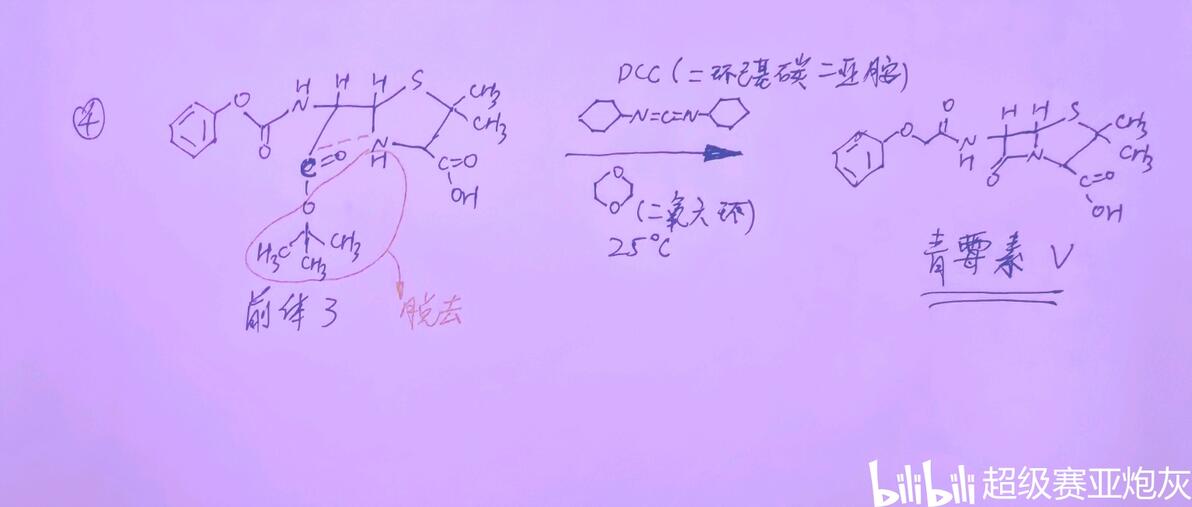 ④
DCC(二环己基碳二亚胺)
N=C=N
(二氧六环)
25℃
O
O
H
N
H
H
S
CH3
CH3
N
H
C=O
OH
C=O
O
H3C
CH3
CH3
前体3
脱去
O
O
N
H
H
H
S
CH3
CH3
N
O
C=O
OH
青霉素 V
bilibili 超级赛亚炮灰